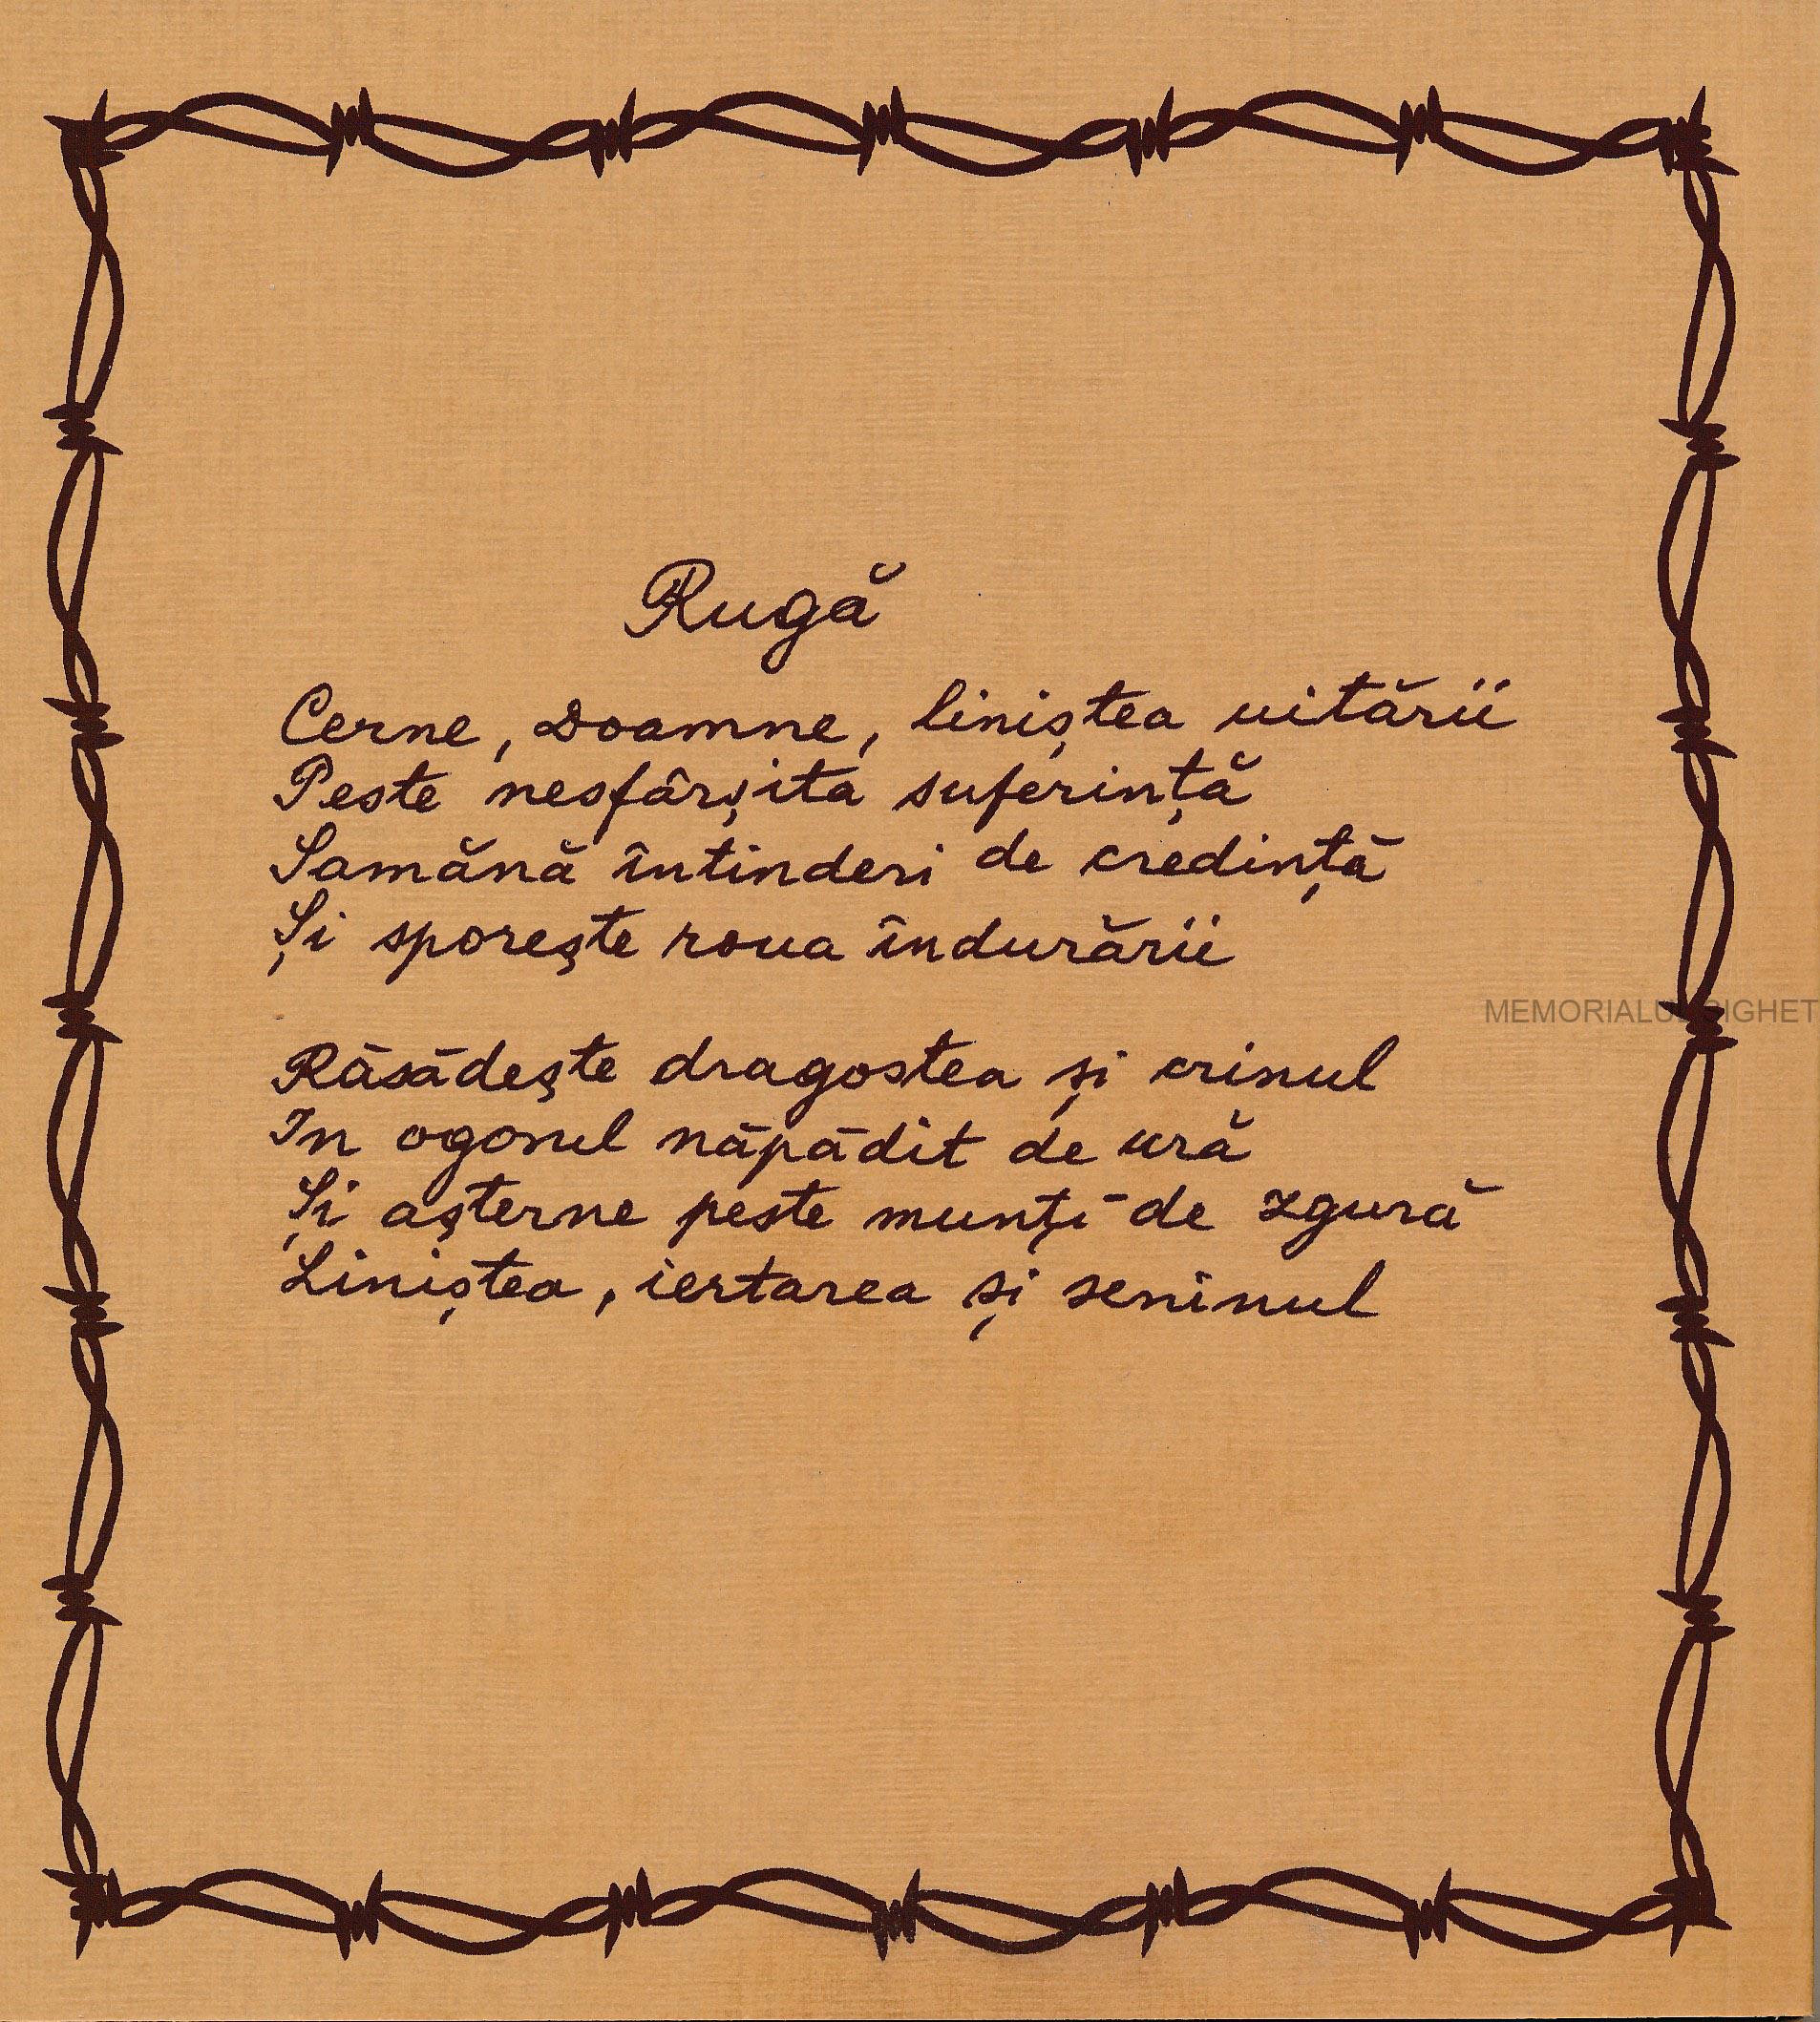 Rugă
Cerne, Doamne, liniștea uitării
Peste nesfârșita suferință
Samănă întinderi de credință
Și sporește roua îndurării
MEMORIALUL SIGHET
Răsădește dragostea și crinul
In ogorul năpădit de ură
Și așterne peste munți de zgură
Liniștea, iertarea și seninul